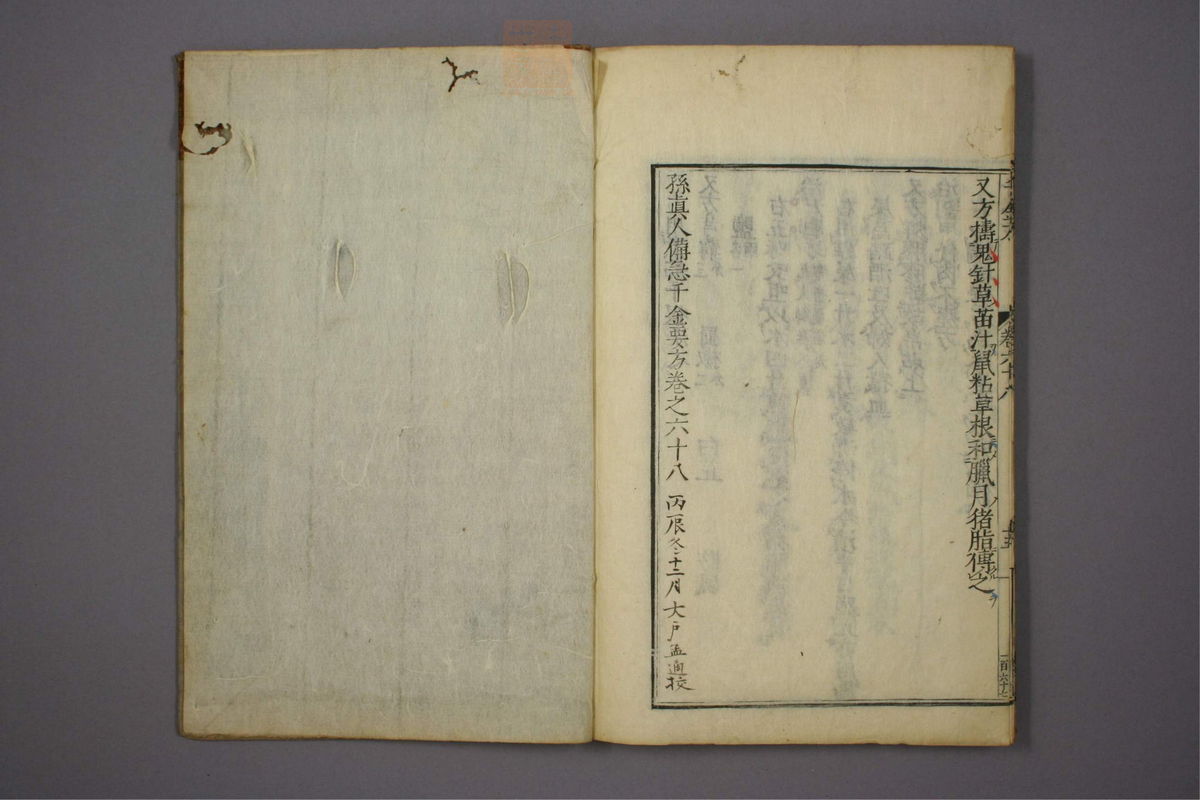 又方擣鬼針草苗汁鼠粘草根和臘月猪脂傅之
孫真人備急千金要方卷之六十八 丙辰冬十二月 大戸孟適校
卷六十八
一百六十七